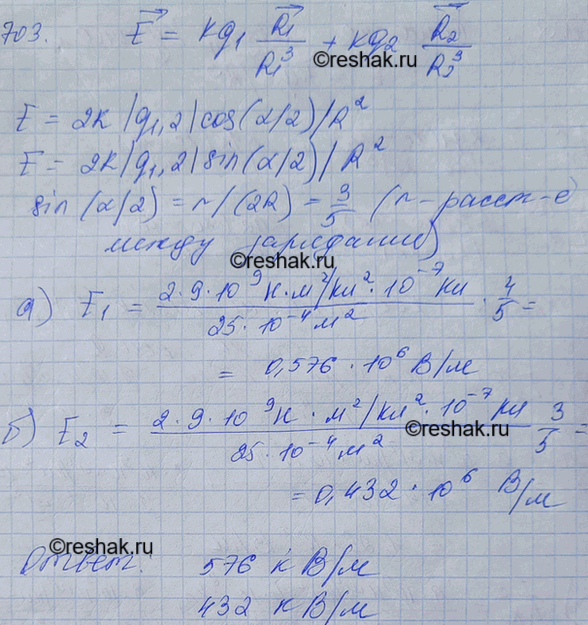 703. E⃗ = kq₁ R⃗₁/R₁³ + kq₂ R⃗₂/R₂³
©reshak.ru
E = 2k |q₁,₂| cos(α/2)/R²
E = 2k |q₁,₂| sin(α/2)/R²
sin(α/2) = r/(2R) = 3/5 (r - расст-е
между зарядами)
©reshak.ru
а) E₁ = 2·9·10⁹ Н·м²/кл²·10⁻⁷ кл / 25·10⁻⁴ м² · 4/5 =
= 0,576 · 10⁶ В/м
б) E₂ = 2·9·10⁹ Н·м²/кл²·10⁻⁷ кл / 25·10⁻⁴ м² · 3/5 =
©reshak.ru
= 0,432 · 10⁶ В/м
©reshak.ru
Ответ: 576 кВ/м
432 кВ/м